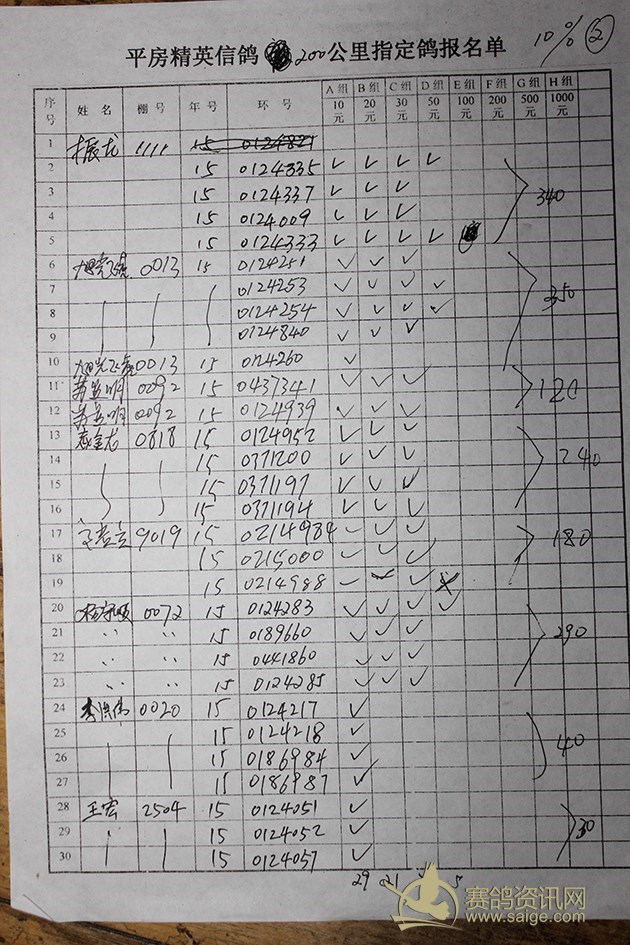 10% ②
平房精英信鸽 200公里指定鸽报名单
序号 姓 名 棚 号 年 号 环 号 A 组 10 元 B 组 20 元 C 组 30 元 D 组 50 元 E 组 100 元 F 组 200 元 G 组 500 元 H 组 1000 元
1 1111 15 0124821
2 15 0124335 ✓ ✓ ✓ ✓
3 15 0124337 ✓ ✓ ✓ 340
4 15 0124009 ✓ ✓ ✓
5 15 0124333 ✓ ✓ ✓ ✓
6 0013 15 0124251 ✓ ✓ ✓
7 0124253 ✓ ✓ ✓ ✓ 350
8 0124254 ✓ ✓ ✓ ✓
9 0124840 ✓ ✓ ✓
10 0013 15 0124260 ✓
11 0092 15 0437341 ✓ ✓ ✓ 120
12 0092 15 0124939 ✓ ✓ ✓
13 0818 15 0124952 ✓ ✓ ✓
14 15 0371200 ✓ ✓ ✓ 240
15 15 0371197 ✓ ✓ ✓
16 15 0371194 ✓ ✓ ✓
17 9019 15 0214984 ✓ ✓ ✓ 180
18 15 0215000 ✓ ✓ ✓
19 15 0214988 ✓ ✓ ✓
20 0072 15 0124283 ✓ ✓ ✓ ✓
21 〃 〃 15 0189660 ✓ ✓ ✓ 290
22 〃 〃 15 0441860 ✓ ✓ ✓
23 〃 〃 15 0124285 ✓ ✓ ✓
24 0020 15 0124217 ✓
25 15 0124218 ✓ 40
26 15 0186984 ✓
27 15 0186987 ✓
28 王宏 2504 15 0124051 ✓
29 15 0124052 ✓ 30
30 15 0124057 ✓
29 21 5
赛鸽资讯网
www.saige.com